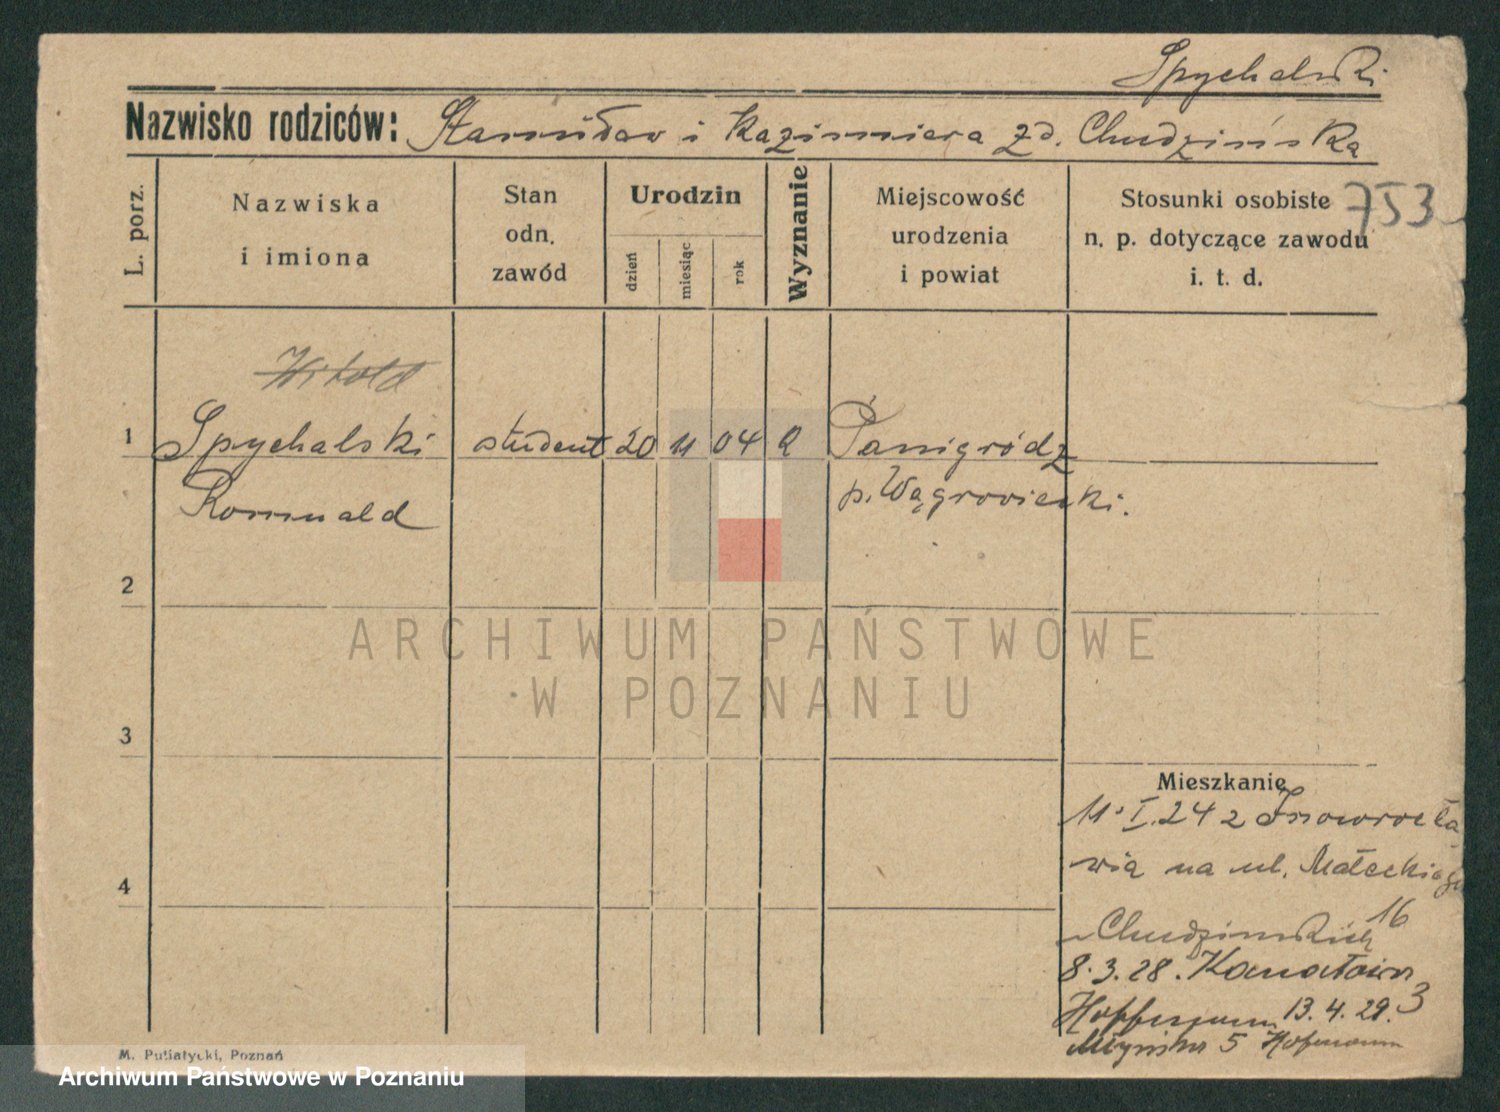 Spychalski
Nazwisko rodziców: Stanisław i Kazimiera zd. Chudzińska
L. porz.
Nazwiska
i imiona
Stan
odn.
zawód
Urodzin
dzień
miesiąc
rok
Wyznanie
Miejscowość
urodzenia
i powiat
Stosunki osobiste
n. p. dotyczące zawodu
i. t. d.
753
Witold
1 Spychalski student 20 11 04 Panigródz
Romuald p. Wągrowiecki.
2
ARCHIWUM PAŃSTWOWE
W POZNANIU
3
Mieszkanie
11. I. 24 z Inowrocła
wia na ul. Małeckiego
16
Chudzińskich
8. 3. 28. Kanałowa
3
Hoffmann 13. 4. 29.
Młyńska 5 Hofmann
4
M. Putiatycki, Poznań
Archiwum Państwowe w Poznaniu